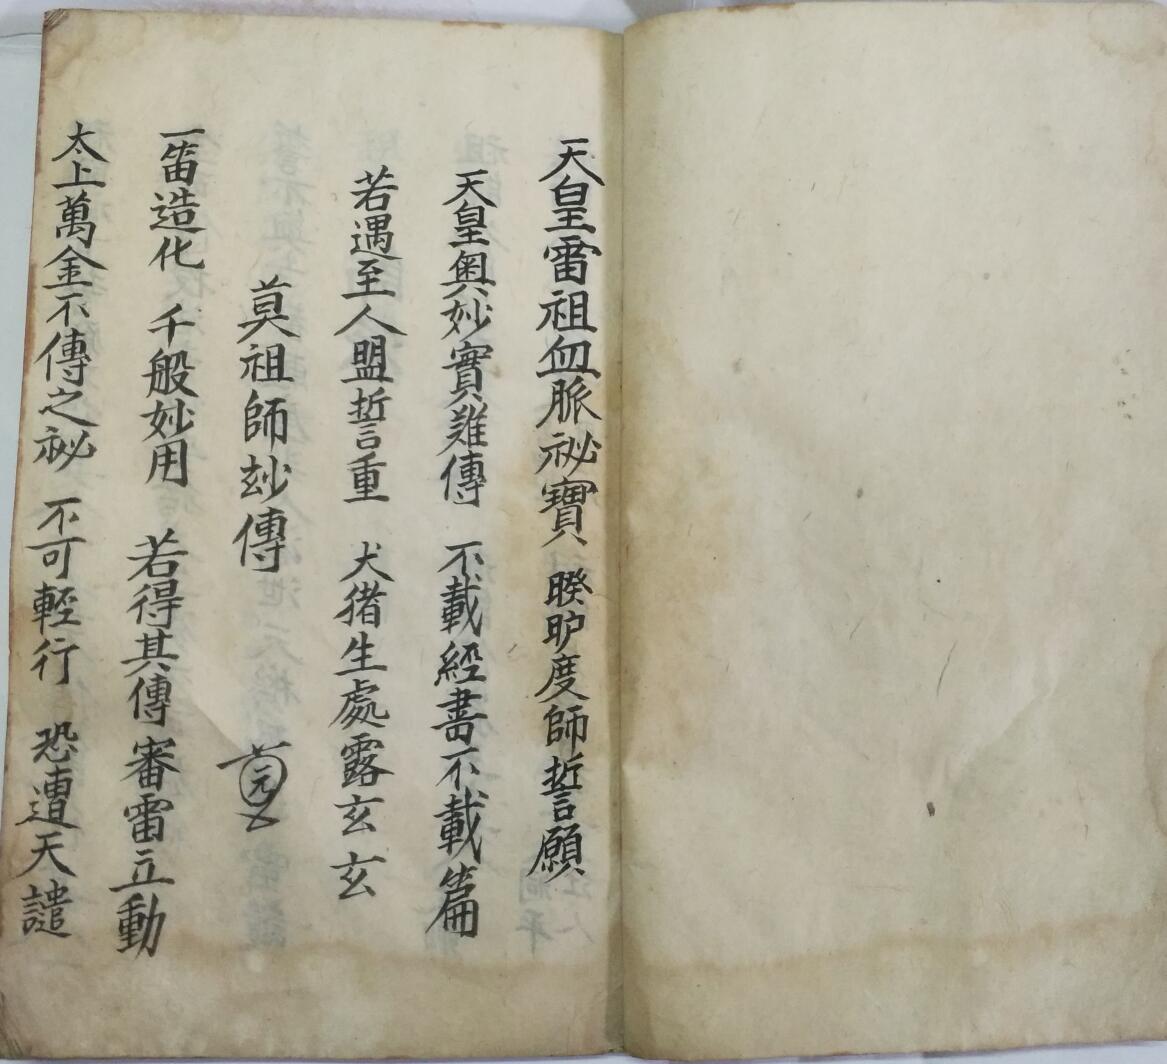 天皇雷祖血脈祕寶 睽昈度師誓願
天皇奧妙實難傳 不載經書不載篇
若遇至人盟誓重 犬猪生處露玄玄
莫祖師玅傳
一笛造化 千般妙用 若得其傳 審雷立動
太上萬金不傳之祕 不可輕行 恐遭天譴